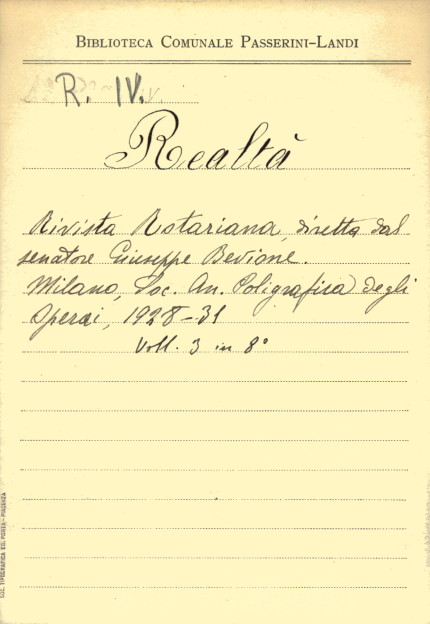 BIBLIOTECA COMUNALE PASSERINI-LANDI
R. IV.
Realtà
Rivista Rotariana, diretta dal
senatore Giuseppe Bevione.
Milano, Soc. An. Poligrafica degli
Operai, 1928-31
Voll. 3 in 8°
SOC. TIPOGRAFICA ED. PORTA - PIACENZA